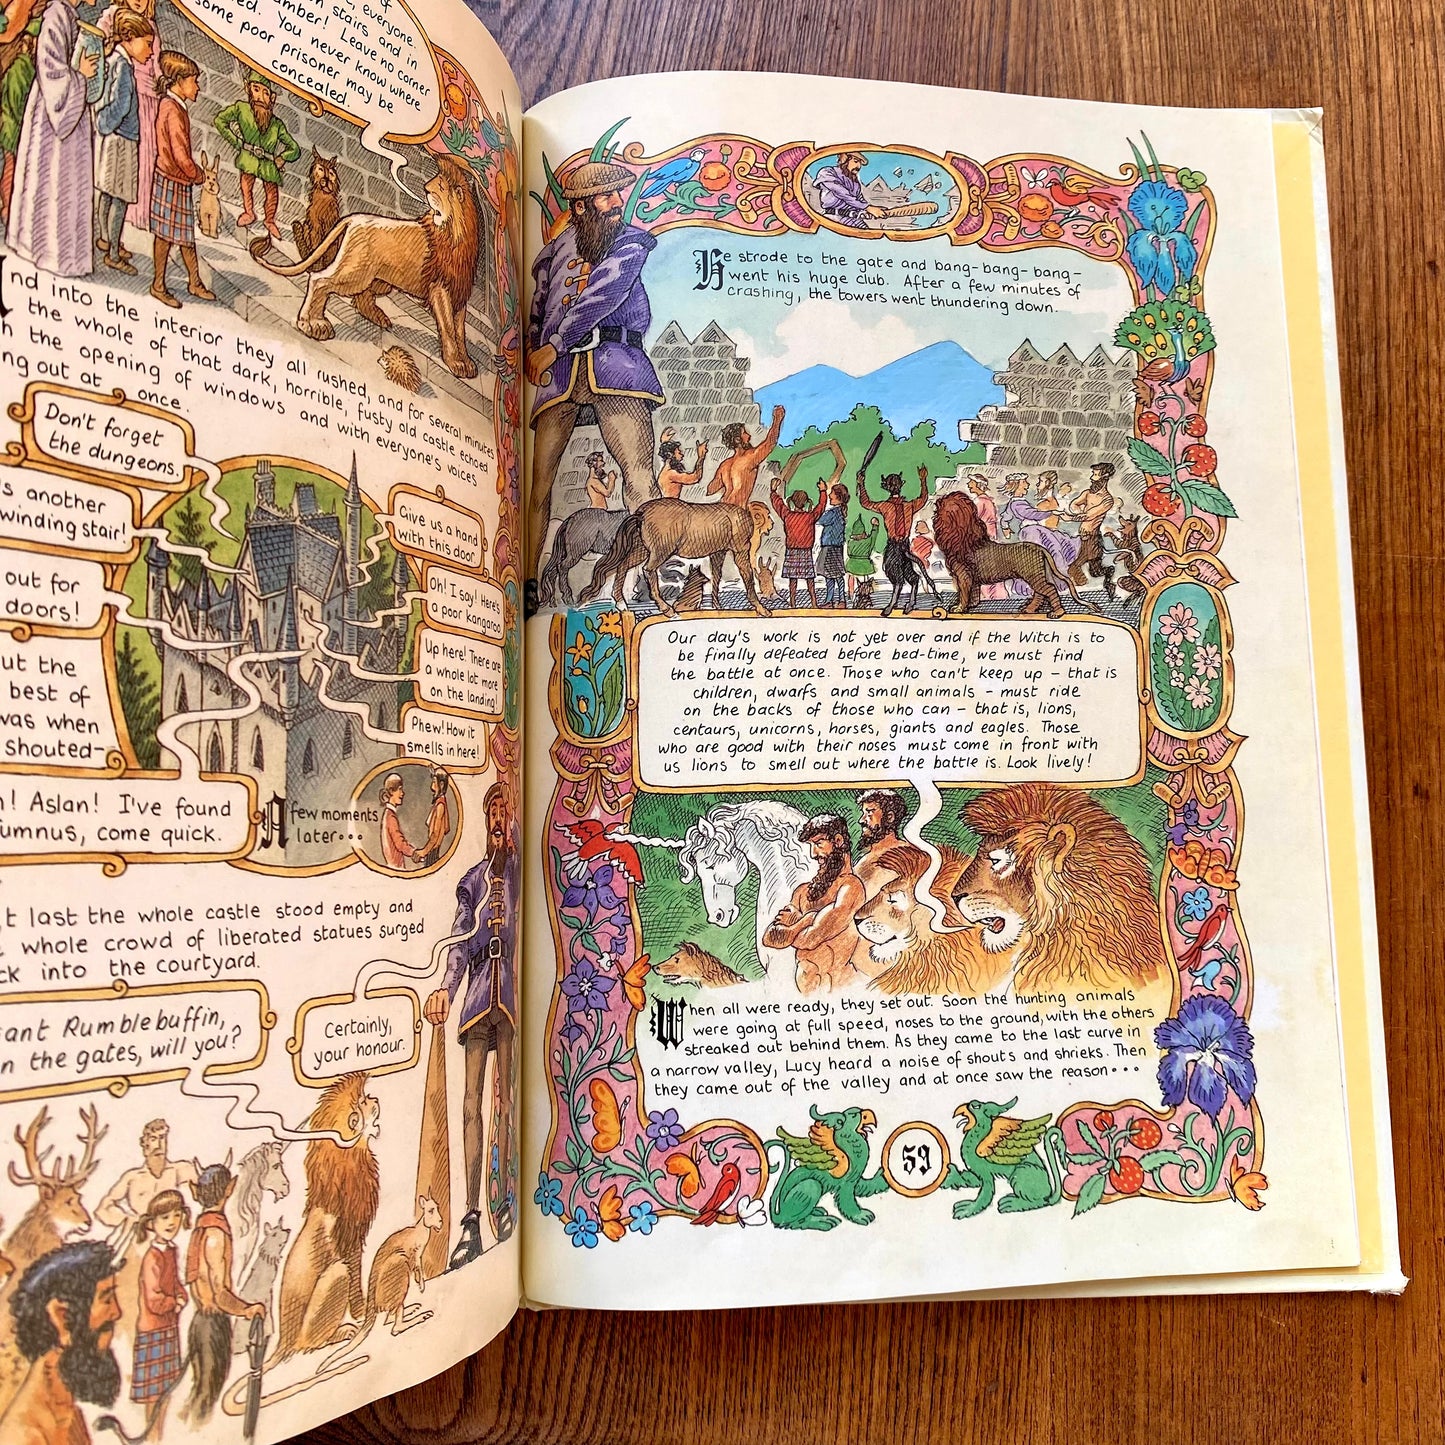 everyone.
stairs and in
Leave no corner
You never know where
some poor prisoner may be
concealed.
nd into the interior they all rushed, and for several minutes
the whole of that dark, horrible, fusty old castle echoed
the opening of windows and with everyone's voices
out at once.
Don't forget
the dungeons.
another
winding stair!
out for
doors!
the
best of
was when
shouted-
Aslan! I've found
come quick.
Give us a hand
with this door
Oh! I say! Here's
a poor kangaroo
Up here! There are
a whole lot more
on the landing!
Phew! How it
smells in here!
A few moments
later...
last the whole castle stood empty and
whole crowd of liberated statues surged
into the courtyard.
Rumblebuffin,
the gates, will you?
Certainly,
your honour.
He strode to the gate and bang-bang-bang-
went his huge club. After a few minutes of
crashing, the towers went thundering down.
Our day's work is not yet over and if the Witch is to
be finally defeated before bed-time, we must find
the battle at once. Those who can't keep up - that is
children, dwarfs and small animals - must ride
on the backs of those who can - that is, lions,
centaurs, unicorns, horses, giants and eagles. Those
who are good with their noses must come in front with
us lions to smell out where the battle is. Look lively!
When all were ready, they set out. Soon the hunting animals
were going at full speed, noses to the ground, with the others
streaked out behind them. As they came to the last curve in
a narrow valley, Lucy heard a noise of shouts and shrieks. Then
they came out of the valley and at once saw the reason...
59